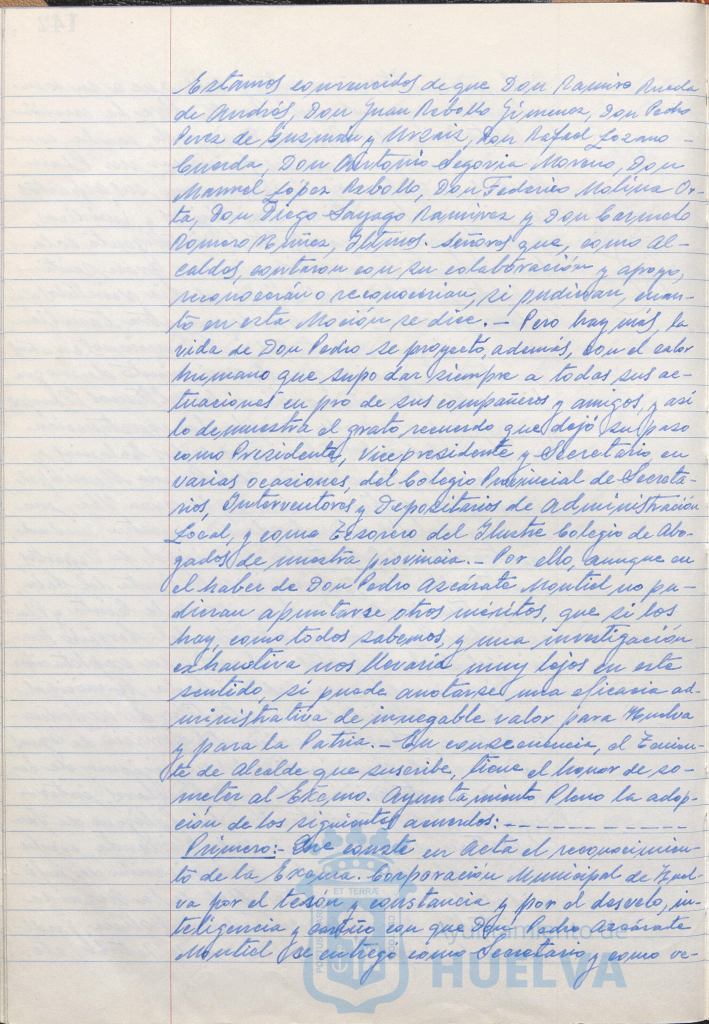 Estamos convencidos de que Don Ramiro Rueda
de Andrés, Don Juan Rebollo Jimenez, Don Pedro
Perez de Guzman y Urzaiz, Don Rafael Lozano
Cuerda, Don Antonio Segovia Moreno, Don
Manuel Lopez Rebollo, Don Federico Molina Or-
ta, Don Diego Sayago Ramirez y Don Carmelo
Romero Núñez, Iltmos. Señores que, como Al-
caldes, contaron con su colaboración y apoyo,
reconocerán o reconocerian, si pudieran, cuan-
to en esta Moción se dice. - Pero hay más, la
vida de Don Pedro se proyectó, además, con el calor
humano que supo dar siempre a todas sus ac-
tuaciones en pro de sus compañeros y amigos, y así
lo demuestra el grato recuerdo que dejó su paso
como Presidente, Vicepresidente y Secretario en
varias ocasiones, del Colegio Provincial de Secreta-
rios, Interventores y Depositarios de Administración
Local, y como Tesorero del Ilustre Colegio de Abo-
gados de nuestra provincia. - Por ello, aunque en
el haber de Don Pedro Azcárate Montiel no pu-
dieran apuntarse otros méritos, que si los
hay, como todos sabemos, y una investigación
exhaustiva nos llevaría muy lejos en este
sentido, sí puede anotarse una eficacia ad-
ministrativa de innegable valor para Huelva
y para la Patria. - En consecuencia, el Tenien-
te de Alcalde que suscribe, tiene el honor de so-
meter al Excmo. Ayuntamiento Pleno la adop-
ción de los siguientes acuerdos: - - - - - - - - - -
Primero: - Que conste en Acta el reconocimien-
to de la Excma. Corporación Municipal de Huel-
va por el tesón y constancia y por el desvelo, in-
teligencia y cariño con que Don Pedro Azcárate
Montiel se entregó como Secretario y como ve-
ET TERRAE
Ayuntamiento de
HUELVA